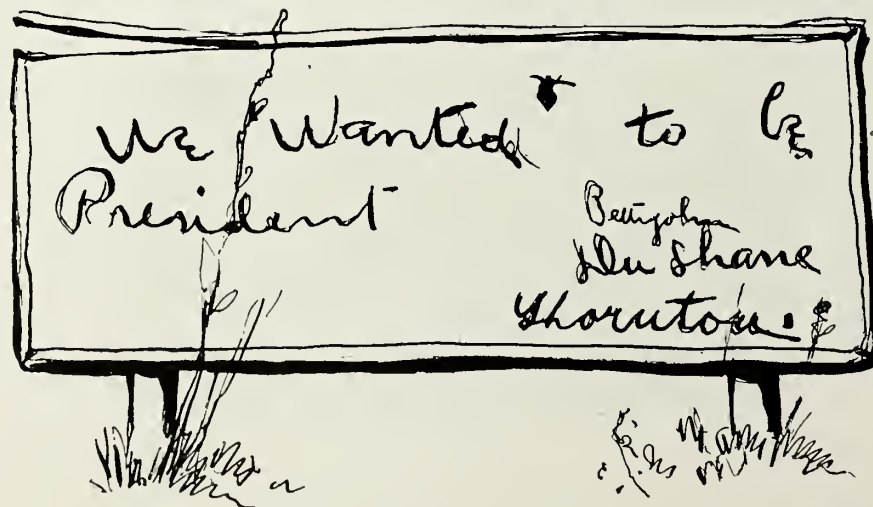 We Wanted to be
President
Pettijohn
Du Shane
Thornton.